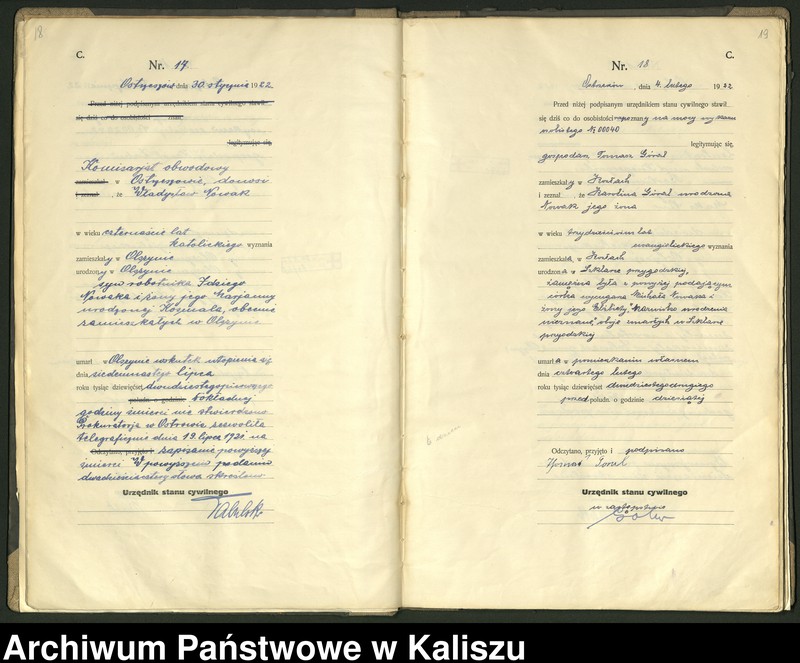 18
C.
Nr. 17
Ostrzeszów dnia 30. stycznia 1922
Przed niżej podpisanym urzędnikiem stanu cywilnego stawił
się dziś co do osobistości znan
legitymując się,
Komisarjat obwodowy
w Ostrzeszowie, donosi
i zeznał, że Władysław Nowak
w wieku czternaście lat
katolickiego wyznania
zamieszkały w Olszynie
urodzony w Olszynie
syn robotnika Idziego
Nowaka i żony jego Marjanny
urodzonej Koźmała, obecnie
zamieszkałych w Olszynie
umarł w Olszynie wskutek utopienia się
dnia siedemnastego lipca
roku tysiąc dziewięćset dwudziestegopierwszego
połudn. o godzinie Dokładnej
godziny śmierci nie stwierdzono
Prokuratorja w Ostrowie zezwoliła
telegraficznie dnia 19. lipca 1921. na
Odczytano, przyjęto i zapisanie powyższej
śmierci W powyższem podaniu
dwadzieścia słowa skreślono
Urzędnik stanu cywilnego
19
C.
Nr. 18
dnia 4. lutego 1922
Przed niżej podpisanym urzędnikiem stanu cywilnego stawił
się dziś co do osobistości rozpoznany na mocy wykazu
osobistego № 00040
legitymując się,
gospodarz Tomasz Góral
zamieszkały w
i zeznał, że Karolina Góral urodzona
Nowak jego żona
w wieku lat
ewangielickiego wyznania
zamieszkała w
urodzona w Szklarce przygodzkiej,
zamężna była z powyżej podającym
córka wycugarza Michała Nowaka i
żony jego Elżbiety, nazwisko urodzenia
nieznane" oboje zmarłych w Szklarce
przygodzkiej
umarła w pomieszkaniu własnem
dnia czwartego lutego
roku tysiąc dziewięćset dwudziestegodrugiego
przed połudn. o godzinie dziesiątej
Odczytano, przyjęto i podpisano
Tomas Goral
Urzędnik stanu cywilnego
w zastępstwie
Archiwum Państwowe w Kaliszu